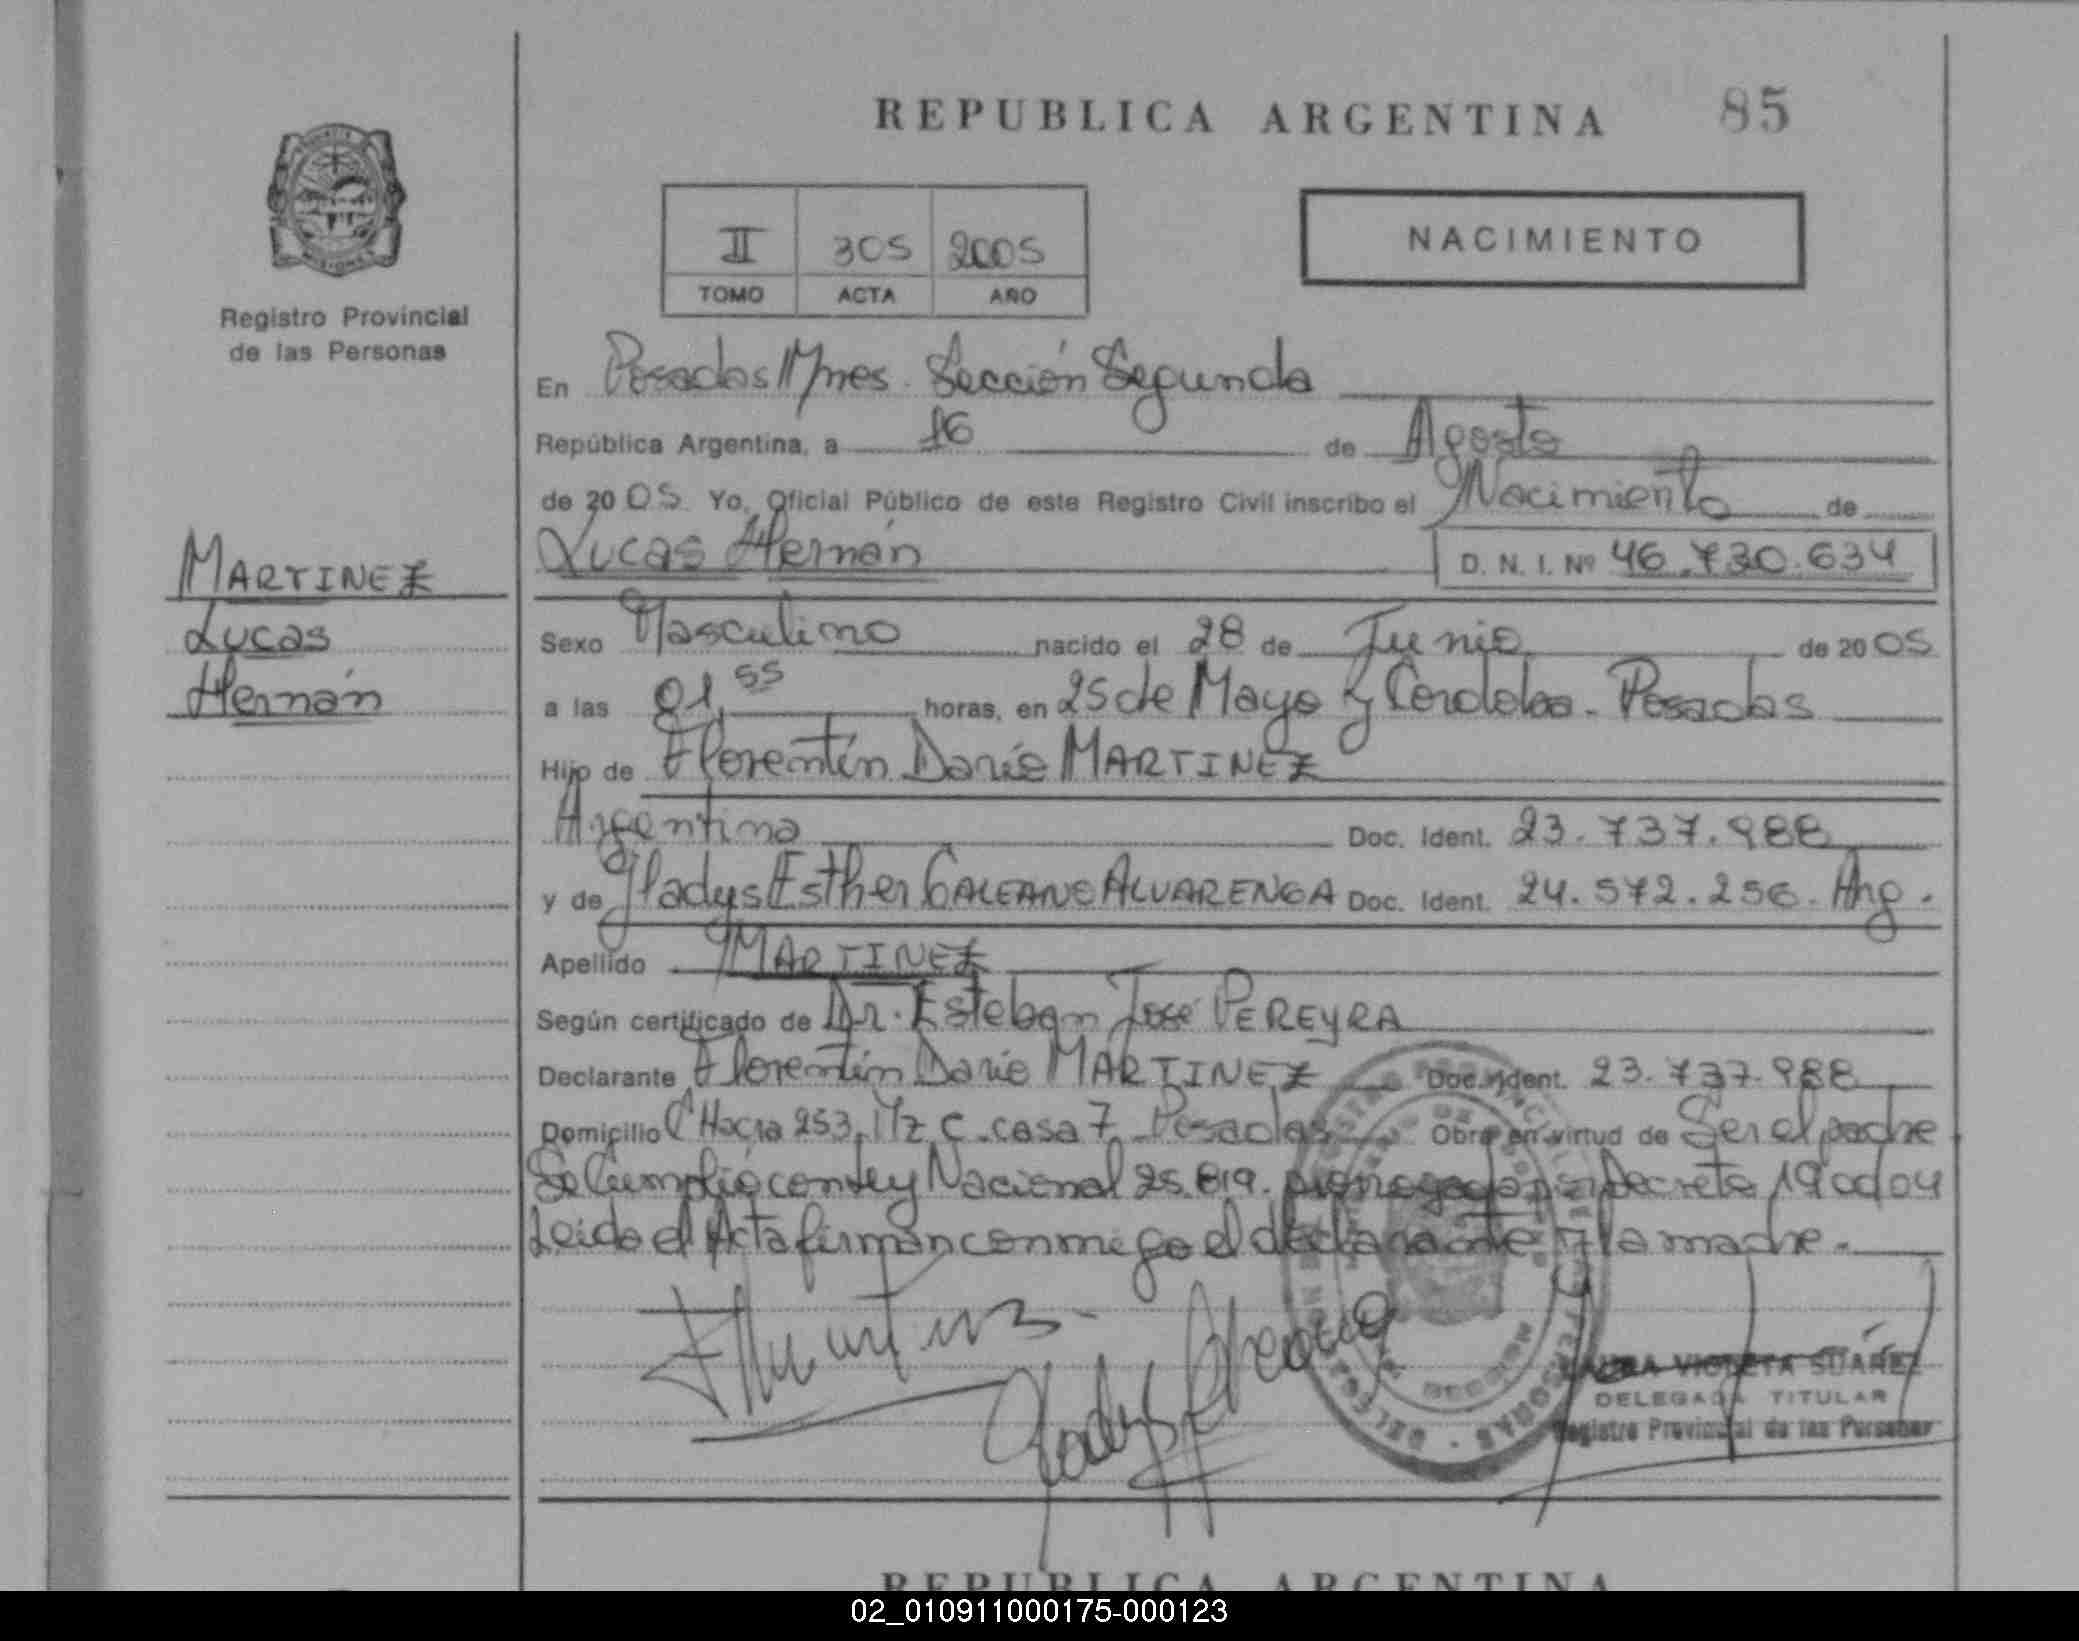 REPUBLICA ARGENTINA 85
MISIONES
Registro Provincial
de las Personas
II 305 2005
TOMO ACTA AÑO
NACIMIENTO
En Posadas Mnes. Sección Segunda
República Argentina, a 16 de Agosto
de 2005. Yo, Oficial Público de este Registro Civil inscribo el Nacimiento de
Lucas Hernán D. N. I. Nº 46.730.634
MARTINEZ
Lucas
Hernán
Sexo Masculino nacido el 28 de Junio de 2005
a las 01,55 horas, en 25 de Mayo y Cordoba. Posadas
Hijo de Florentín Darío MARTINEZ
Argentino Doc. Ident. 23.737.988
y de Gladys Esther GALEANO ALVARENGA Doc. Ident. 24.572.256. Arg.
Apellido MARTINEZ
Según certificado de Dr. Esteban José PEREYRA
Declarante Florentín Darío MARTINEZ Doc. Ident. 23.737.988
Domicilio Cº Hacia 253, Mz C. casa 7. Posadas Obra en virtud de Ser el padre
Se Cumplió con Ley Nacional 25.819. prorrogada por Decreto 19
Leido el Acta firman conmigo el declarante y la madre.
LAURA VIOLETA SUÁREZ
DELEGADA TITULAR
Registro Provincial de las Personas
REPUBLICA ARGENTINA
02_010911000175-000123